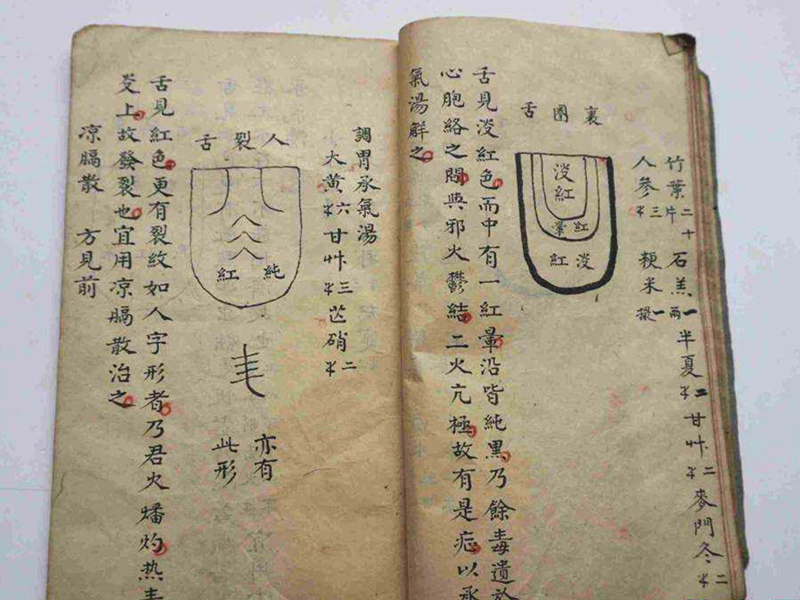 竹葉二十片 石羔一兩 半夏二 甘艸二 麥門冬二
人參三 粳米一撮
裏圈舌
淡紅
紅暈
淡紅
舌見淡紅色而中有一紅暈沿皆純黑乃餘毒遺於
心胞絡之間與邪火鬱結二火亢極故有是症以承
氣湯觧之
調胃承氣湯
大黃六 甘艸三 芒硝二
人裂舌
純紅
亦有
此形
舌見紅色更有裂紋如人字形者乃君火燔灼热毒
炎上故發裂也宜用凉膈散治之
凉膈散 方見前